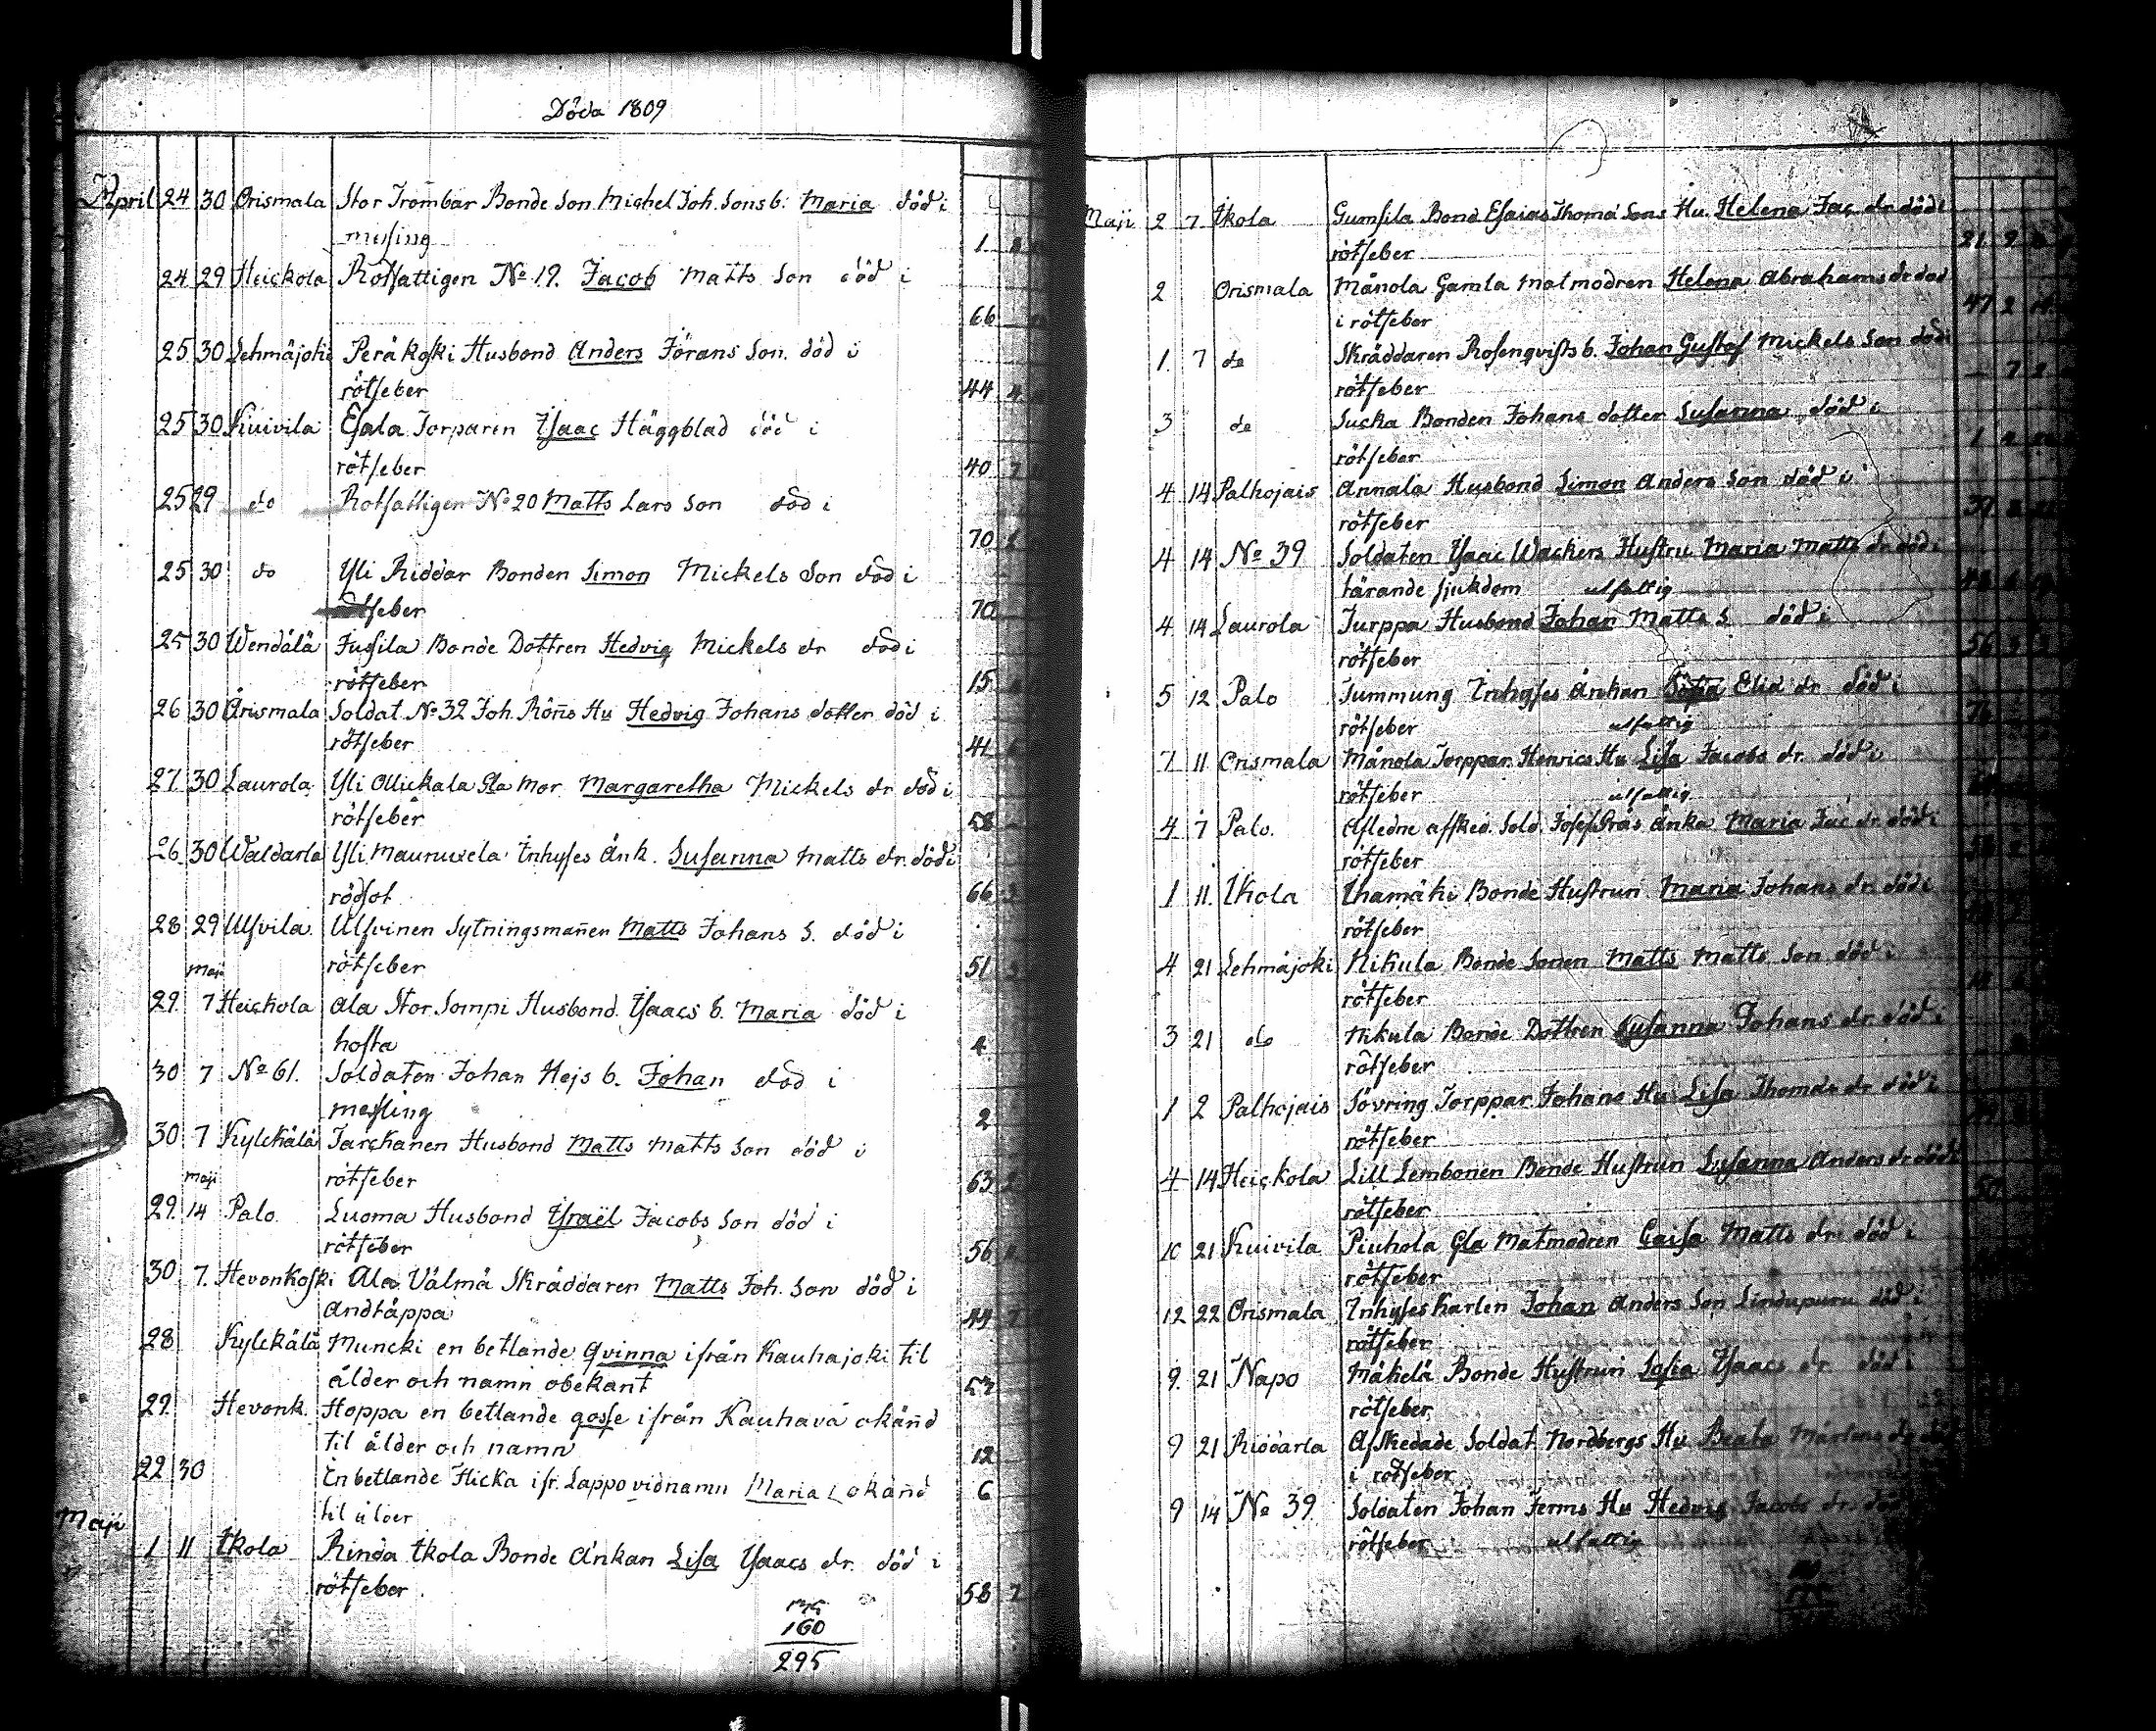 Döda 1809
April 24 30 Orismala Stor Trombar Bonde Son Michel Joh. Sons b. Maria död i
mesing 1
24 29 Heickola Rotfattigen No 19. Jacob Matts Son död i
66
25 30 Lehmäjoki Peräkoski Husbond Anders Jörans Son. död i
rötfeber 44 4
25 30 Kuivila Esala Torparen Isaac Häggblad död i
rötfeber 40 7
25 29 do Rotfattigen No 20 Matts Lars Son död i
70
25 30 do Yli Riddar Bonden Simon Mickels Son död i
rötfeber 70
25 30 Wendälä Jussila Bonde Dottren Hedvig Mickels dr död i
rötfeber 15
26 30 Orismala Soldat No 32 Joh. Röñs Hu Hedvig Johans dotter död i
rötfeber 41
27 30 Laurola Yli Ollickala Gla Mor Margaretha Mickels dr död i
rötfeber 58
26 30 Waldarla Yli Mauruxela Inhyses Änk. Susanna Matts dr. död i
rödsot 66
28 29 Ulfvila Ulfvinen Sytningsmañen Matts Johans S. död i
rötfeber 51
maji
29. 7 Heickola Ala Stor Sompi Husbond. Isaacs b. Maria död i
hosta 4
30 7 No 61. Soldaten Johan Hejs b. Johan död i
messling 2
30 7 Kylckälä Jarckanen Husbond Matts Matts Son död i
rötfeber 63
maji
29. 14 Palo. Luoma Husbond Israël Jacobs Son död i
rötfeber 56
30 7. Hevonkoski Ala Välmä Skräddaren Matts Joh. Son död i
Andtäppa 44 7
28 Kylckälä Muncki en betlande qvinna ifrån Kauhajoki til
ålder och namn obekant 57
29. Hevonk. Hoppa en betlande gosse ifrån Kauhava okäñd
til ålder och namn 12
22 30 En betlande Flicka ifr. Lappo vid namn Maria okäñd
til ålder 6
Maji
1 11 Ikola Rinda Ikola Bonde Änkan Lisa Isaacs dr. död i
rötfeber. 58 7
160
295
Maji 2 7 Ikola Gumsila Bond Esaias Thomæ Sons Hu. Helena Jac. dr död i
rötfeber 21. 9
2 Orismala Månola Gamla Matmodren Helena Abrahams dr död
i rötfeber 47 2
1. 7 do Skräddaren Rosenqvists b. Johan Gustaf Mickels Son död i
rötfeber — 7
3 do Sucka Bonden Johans dotter Susanna död i
rötfeber 1
4 14 Palhojais Annala Husbond Simon Anders Son död i
rötfeber 37
4 14 No 39 Soldaten Isaac Wackers Hustru Maria Matts dr död i
tärande sjukdom utfattig
4 14 Laurola Turppa Husbond Johan Matts S död i
rötfeber 56
5 12 Palo Tummung Inhyses Änkan Sofia Elia dr död i
rötfeber utfattig 76
7 11 Orismala Månola Torppar. Henrics Hu Lisa Jacobs dr. död i
rötfeber utfattig
4 7 Palo. Afledne afsked. Sold. Josef Grås Änka Maria Jac. dr död i
rötfeber
1 11. Ikola Ihamäki Bonde Hustrun Maria Johans dr. död i
rötfeber
4 21 Lehmäjoki Nikula Bonde Sonen Matts Matts Son död i
rötfeber
3 21 do Nikula Bonde Dottren Susanna Johans dr död i
rötfeber
1 2 Palhojais Sövring Torppar. Johans Hu Lisa Thomas dr död i
rötfeber
4 14 Heickola Lill Lembonen Bonde Hustrun Susanna Anders dr död i
rötfeber
10 21 Kuivila Piuhola Gla Matmodren Caisa Matts dr. död i
rötfeber
12 22 Orismala Inhyses Karlen Johan Anders Son Lindupuru död i
rötfeber
9. 21 Napo Mäkelä Bonde Hustrun Sofia Isaacs dr död i
rötfeber
9 21 Riddarla Afskedade Soldat Nordbergs Hu Beata Mårtens dr död
i rötfeber
9 14 No 39. Soldaten Johan Ferms Hu Hedvig Jacobs dr. död
rötfeber utfattig